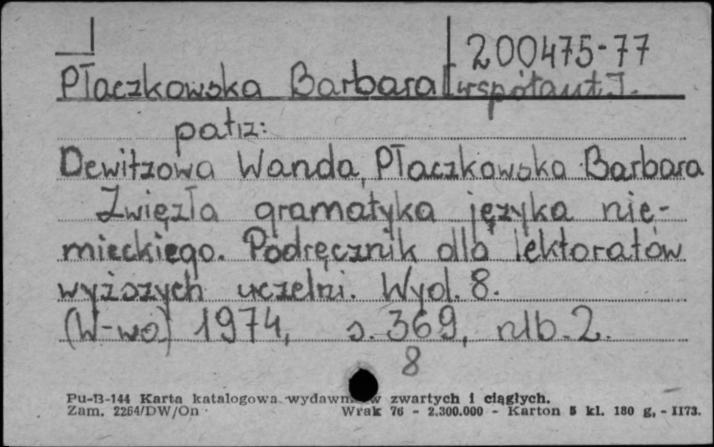 200475-77
Płaczkowska Barbara [współaut.].
patrz:
Dewitzowa Wanda, Płaczkowska Barbara
Zwięzła gramatyka języka nie-
mieckiego. Podręcznik dla lektoratów
wyższych uczelni. Wyd. 8.
(W-wa) 1974, s. 369, nlb. 2.
8
Pu-B-144 Karta katalogowa wydawn w zwartych i ciągłych.
Zam. 2264/DW/On Wrak 76 - 2.300.000 - Karton 5 kl. 180 g. - II73.